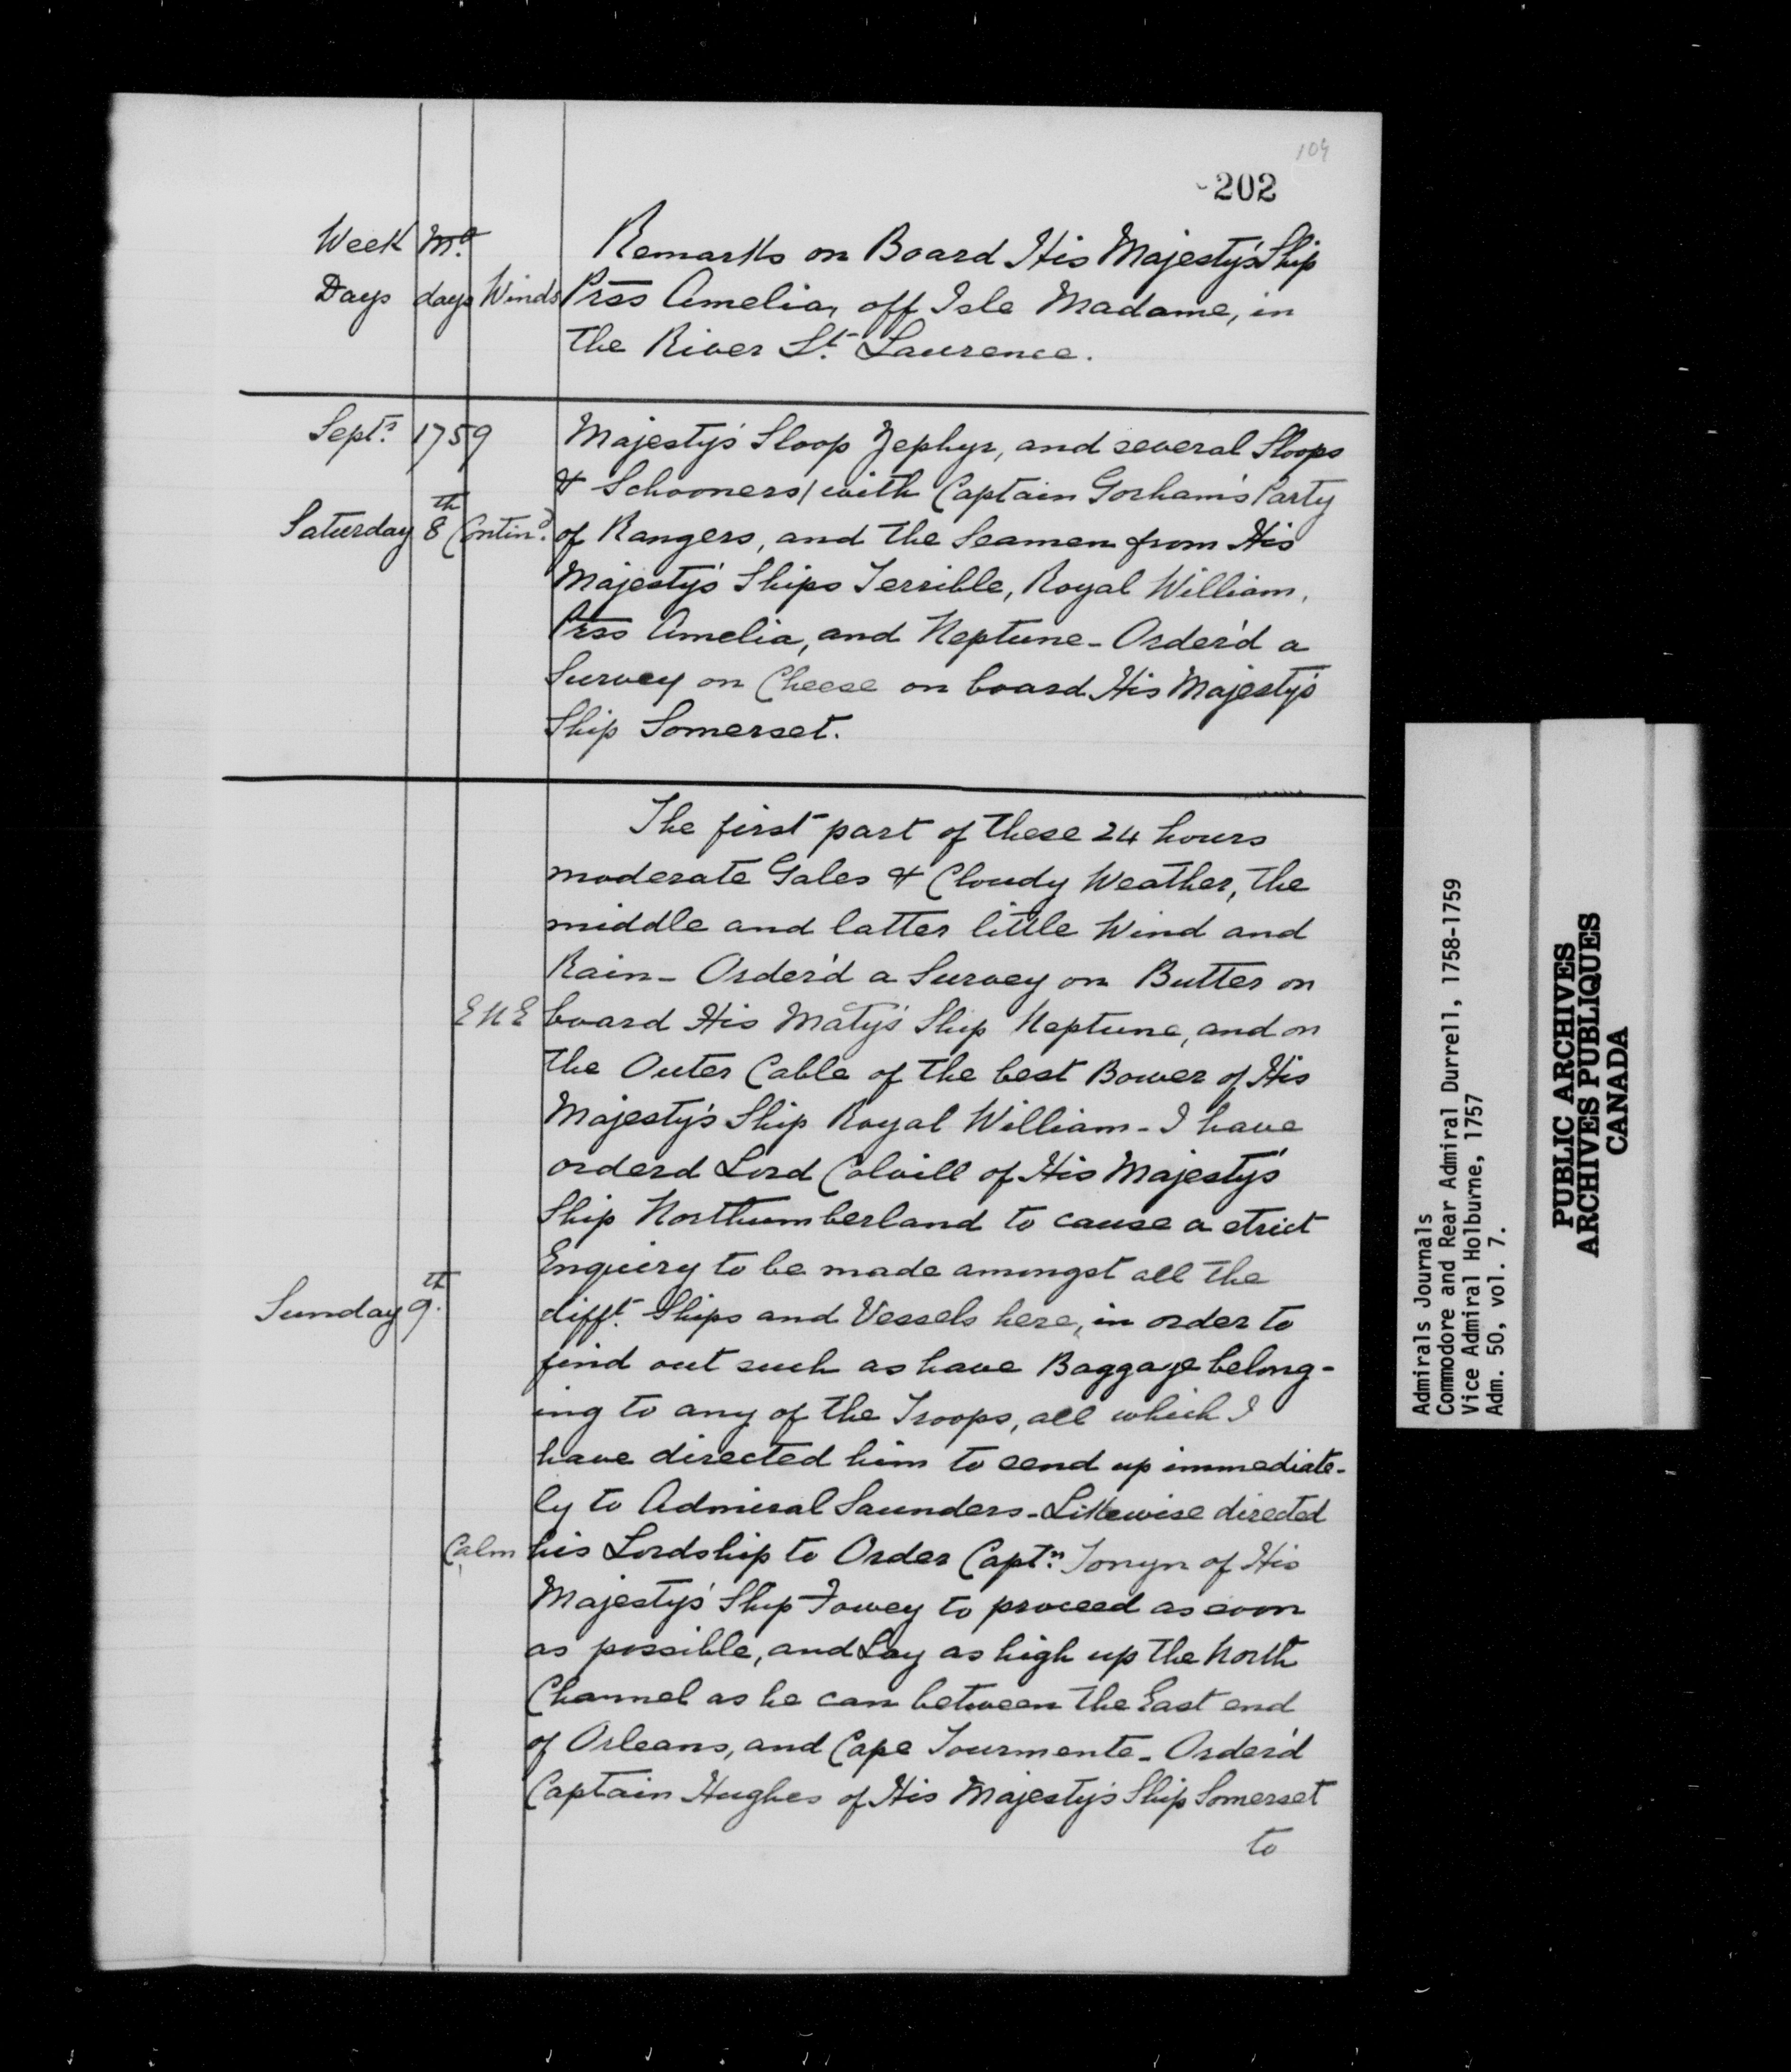 104
202
Week Mo. Remarks on Board His Majesty's Ship
Days days Winds Prss Amelia, off Isle Madame, in
the River St. Laurence.
Septr. 1759 Majesty's Sloop Zephyr, and several Sloops
& Schooners/ with Captain Gorham's Party
Saturday 8th Contind. of Rangers, and the Seamen from His
Majesty's Ships Terrible, Royal William,
Prss Amelia, and Neptune - Order'd a
Survey on Cheese on board His Majesty's
Ship Somerset.
The first part of these 24 hours
moderate Gales & Cloudy Weather, the
middle and latter little Wind and
Rain - Order'd a Survey on Butter on
ENE board His Maty's Ship Neptune, and on
the Outer Cable of the best Bower of His
Majesty's Ship Royal William - I have
orderd Lord Colvill of His Majesty's
Ship Northumberland to cause a strict
Enquiry to be made amongst all the
Sunday 9th. difft. Ships and Vessels here, in order to
find out such as have Baggage belong-
ing to any of the Troops, all which I
have directed him to send up immediate-
ly to Admiral Saunders - Likewise directed
Calm his Lordship to Order Captn. Tonyn of His
Majesty's Ship Fowey to proceed as soon
as possible, and Lay as high up the North
Channel as he can between the East end
of Orleans, and Cape Tourmente - Order'd
Captain Hughes of His Majesty's Ship Somerset
to
Admirals Journals
Commodore and Rear Admiral Durrell, 1758-1759
Vice Admiral Holburne, 1757
Adm. 50, vol. 7.
PUBLIC ARCHIVES
ARCHIVES PUBLIQUES
CANADA